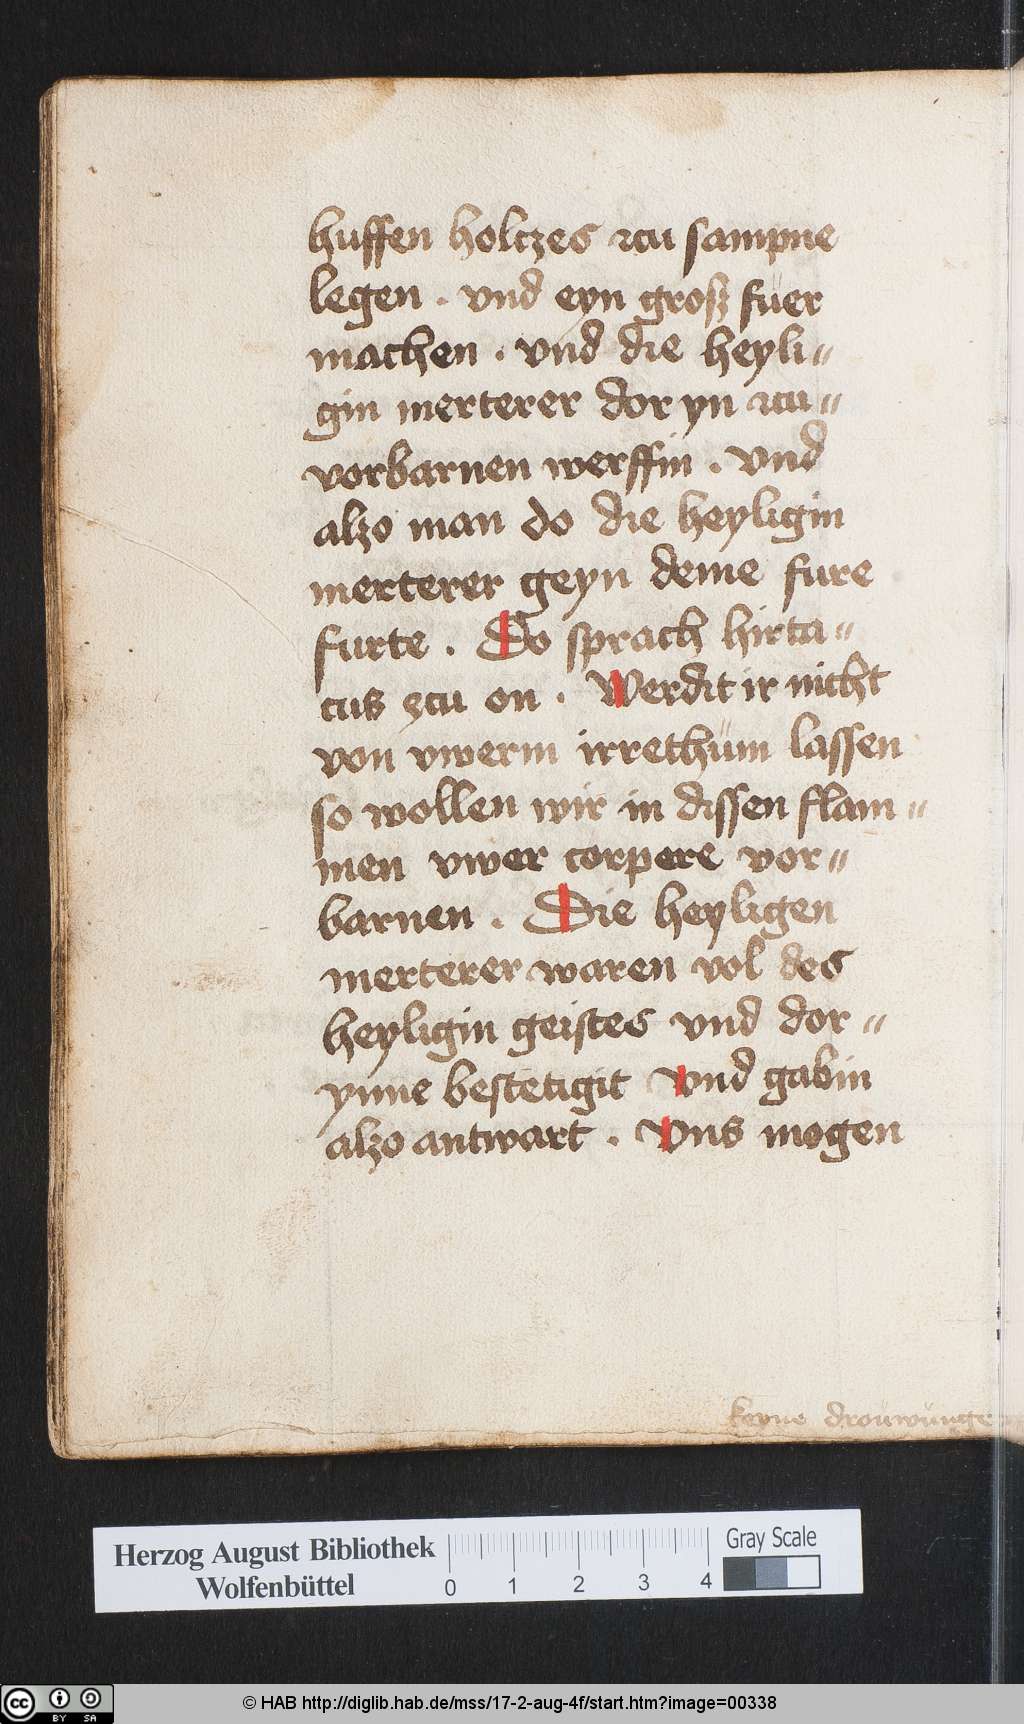 huffen holtzes zcu sampne
legen . vnd eyn groß füer
machen . vnd die heyli〃
gin merterer dor yn zcu〃
vorbarnen werffin . vnd
alzo man do die heyligin
merterer geyn deme fure
furte . Do sprach hirta〃
cus zcu on . Werdit ir nicht
von vwerm irrethüm lassen
so wollen wir in dissen flam〃
men vwer corpere vor〃
barnen . Die heyligen
merterer waren vol des
heyligin geistes vnd dor〃
ynne bestetigit Vnd gabin
alzo antwart . Vns mogen
keyne droüwünge
Herzog August Bibliothek
Wolfenbüttel
0 1 2 3 4
Gray Scale
cc BY SA
© HAB http://diglib.hab.de/mss/17-2-aug-4f/start.htm?image=00338